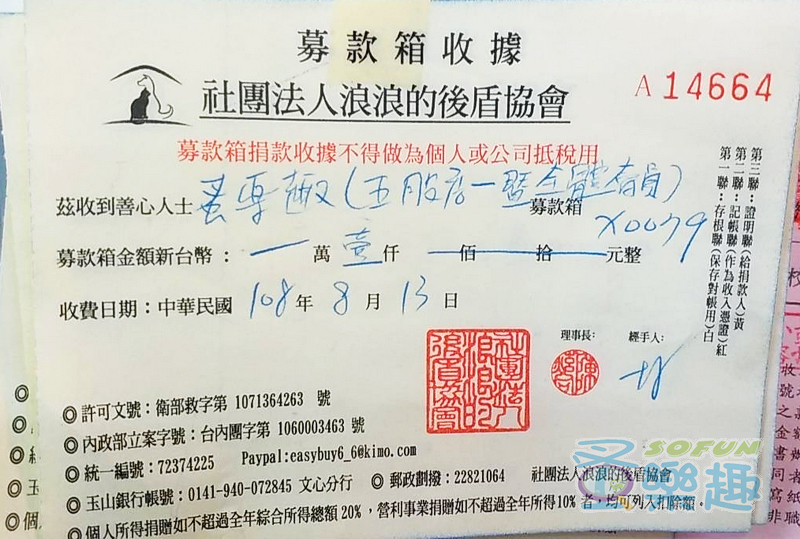 募款箱收據
社團法人浪浪的後盾協會
A 14664
募款箱捐款收據不得做為個人或公司抵稅用
茲收到善心人士 樂趣(五股店一暨全體會員) 募款箱 X0079
募款箱金額新台幣： 一 萬 壹 仟 佰 拾 元整
收費日期：中華民國 108 年 8 月 13 日
理事長： 經手人：
社團法人浪浪的後盾協會
◎許可文號：衛部救字第 1071364263 號
◎內政部立案字號：台內團字第 1060003463 號
◎統一編號：72374225 Paypal:easybuy6_6@kimo.com
◎玉山銀行帳號：0141-940-072845 文心分行 ◎郵政劃撥：22821064 社團法人浪浪的後盾協會
◎個人所得捐贈如不超過全年綜合所得總額 20%，營利事業捐贈如不超過全年所得10% 者，均可列入扣除額．
第三聯：證明聯(給捐款人)黃
第二聯：記帳聯(作為收入憑證)紅
第一聯：存根聯(保存對帳用)白
SOFUN
樂趣